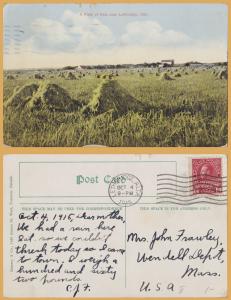 A Field of Oats near Lethbridge, Alta.
Post Card
THIS SPACE MAY BE USED FOR CORRESPONDENCE
THIS SPACE IS FOR ADDRESS ONLY.
OCT 4
9-PM
1915
Oct 4, 1915, Dear mother
We had a rain here
Sat. so we couldn't
thresh today so I came
to town, I weigh a
hundred and sixty
two pounds
C.J.F.
Mrs. John Frawley,
Wendell Dept,
Mass.
U.S.A